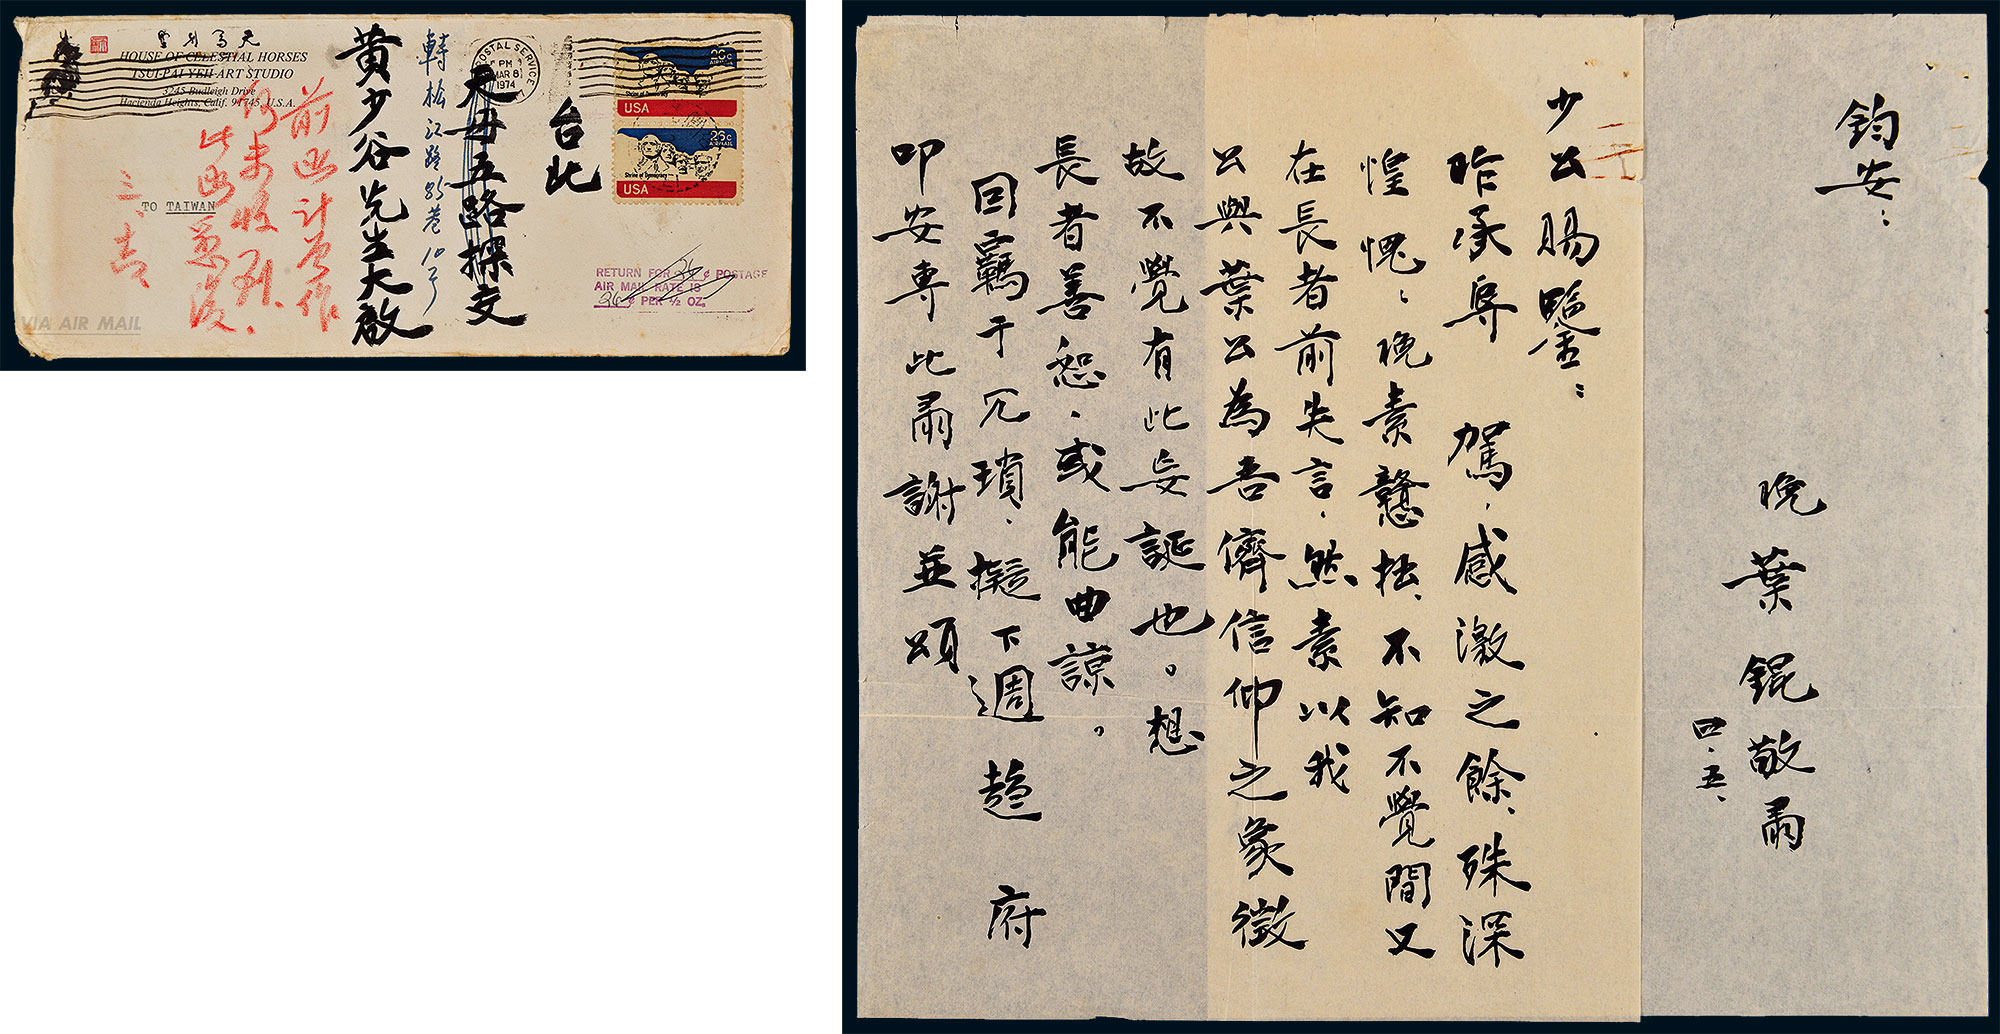 HOUSE OF CELESTIAL HORSES
TSUI-PAI YEH ART STUDIO
3245 Budleigh Drive
Hacienda Heights, Calif. 91745, U.S.A.
POSTAL SERVICE
PM
MAR 8
1974
26c
AIRMAIL
Shrine of Democracy
USA
26c
AIRMAIL
Shrine of Democracy
USA
台北
天母五路探交
轉松江路85巷10号
黄少谷先生大啟
前函计
未收到
此函
TO TAIWAN
VIA AIR MAIL
RETURN FOR 26 ¢ POSTAGE
AIR MAIL RATE IS
26 ¢ PER ½ OZ.
少公賜鑒：
昨承辱 駕，感激之餘、殊深
惶愧；晚素戇拙、不知不覺間又
在長者前失言，然素以我
公與葉公為吾儕信仰之象徵
故不覺有此妄誕也。想
長者善恕，或能曲諒。
回羈于冗瑣，擬下週趨 府
叩安專此肅謝並頌
鈞安：
晚葉錕敬肅
四．五、